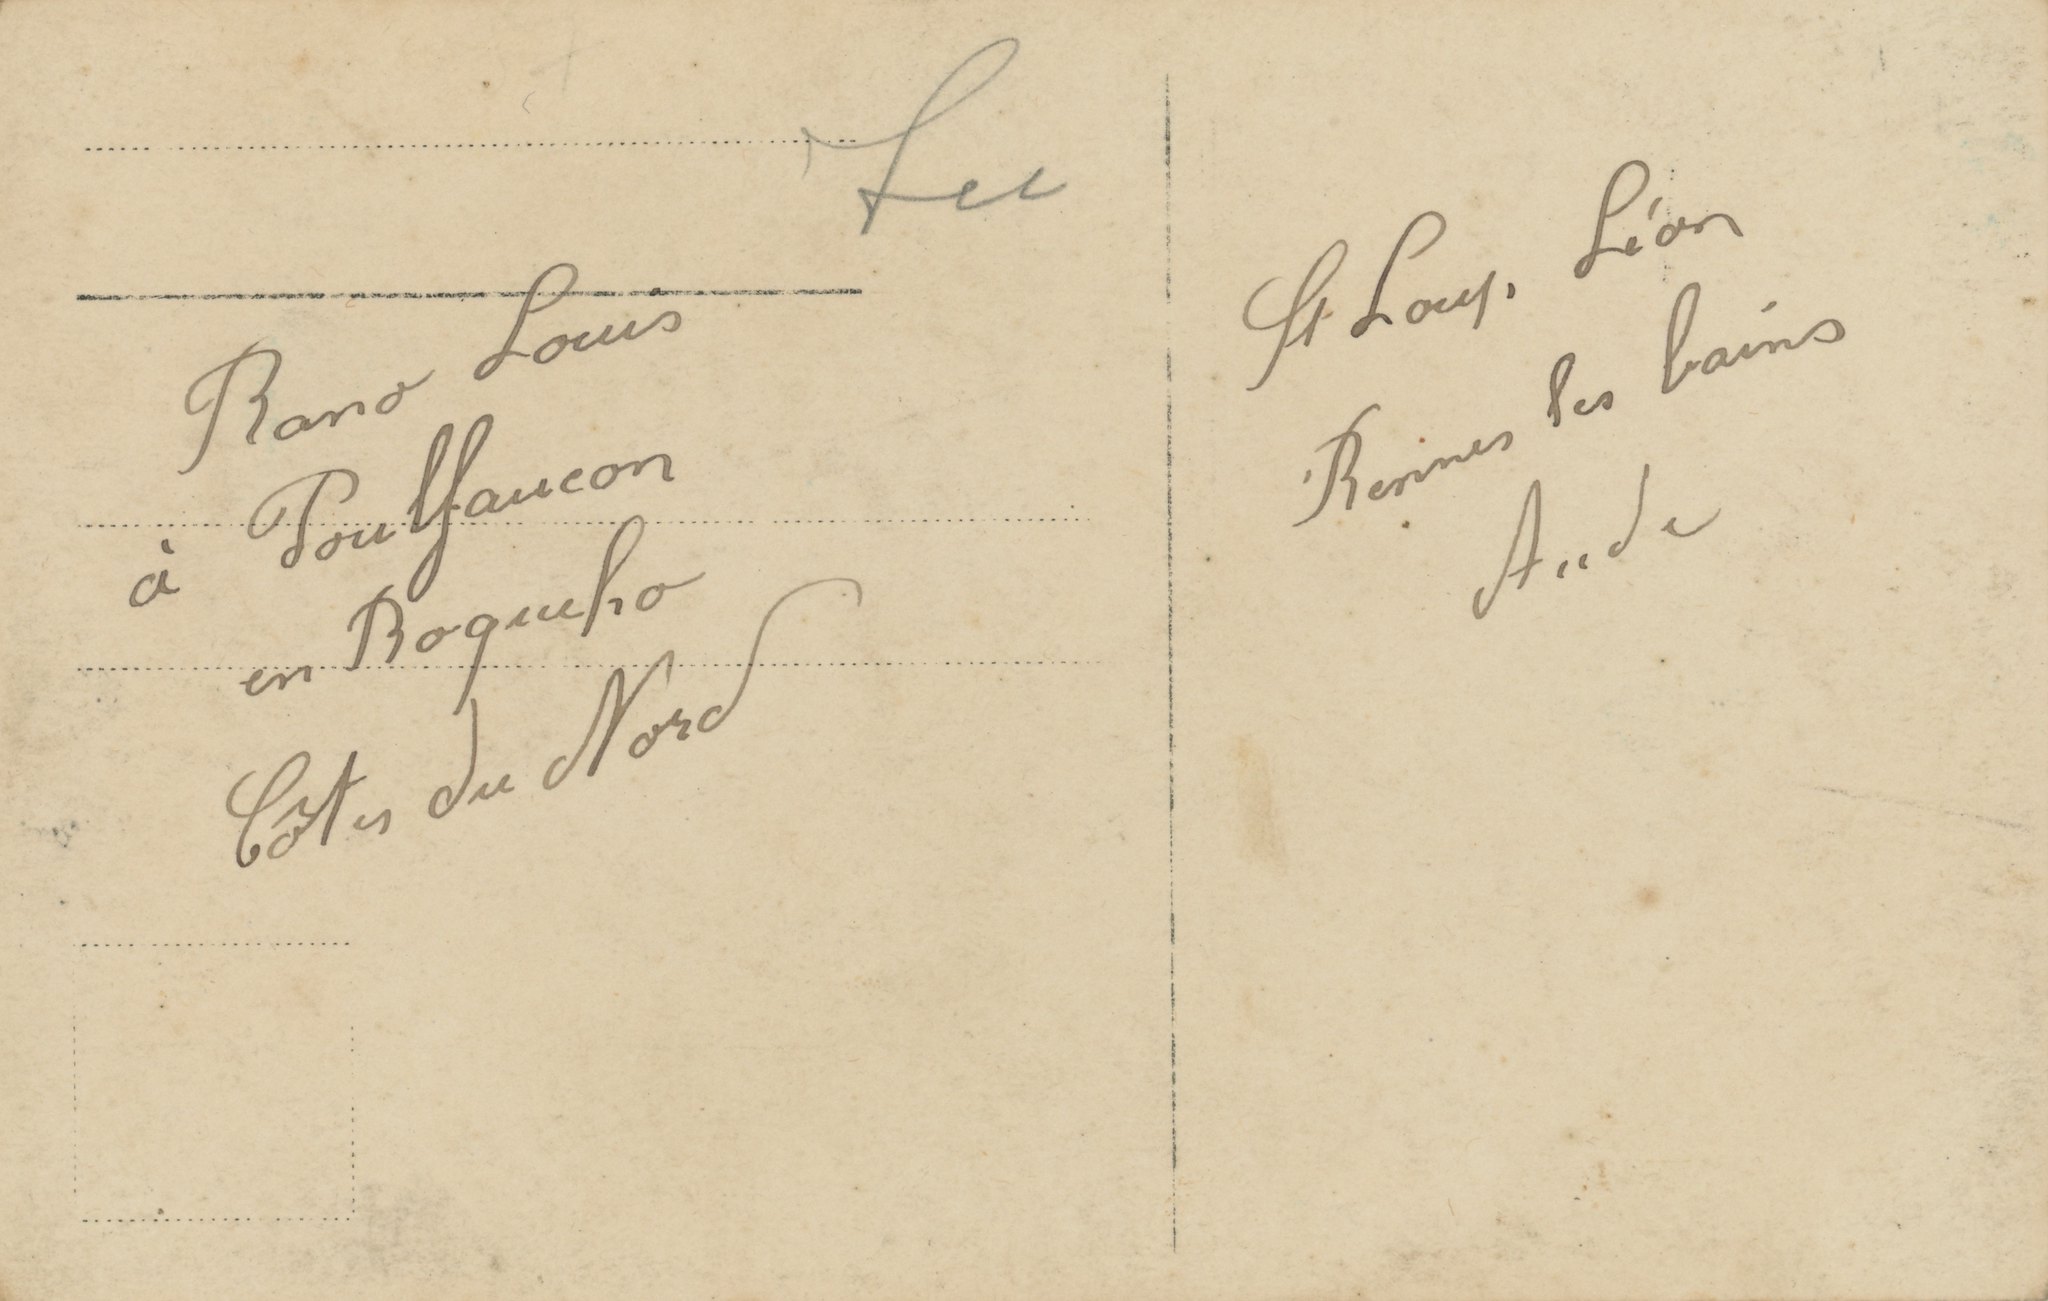 Rano Louis
à Poulfaucon
en Roquuho
Côtes du Nord
St Loup. Léon
Rennes les bains
Aude